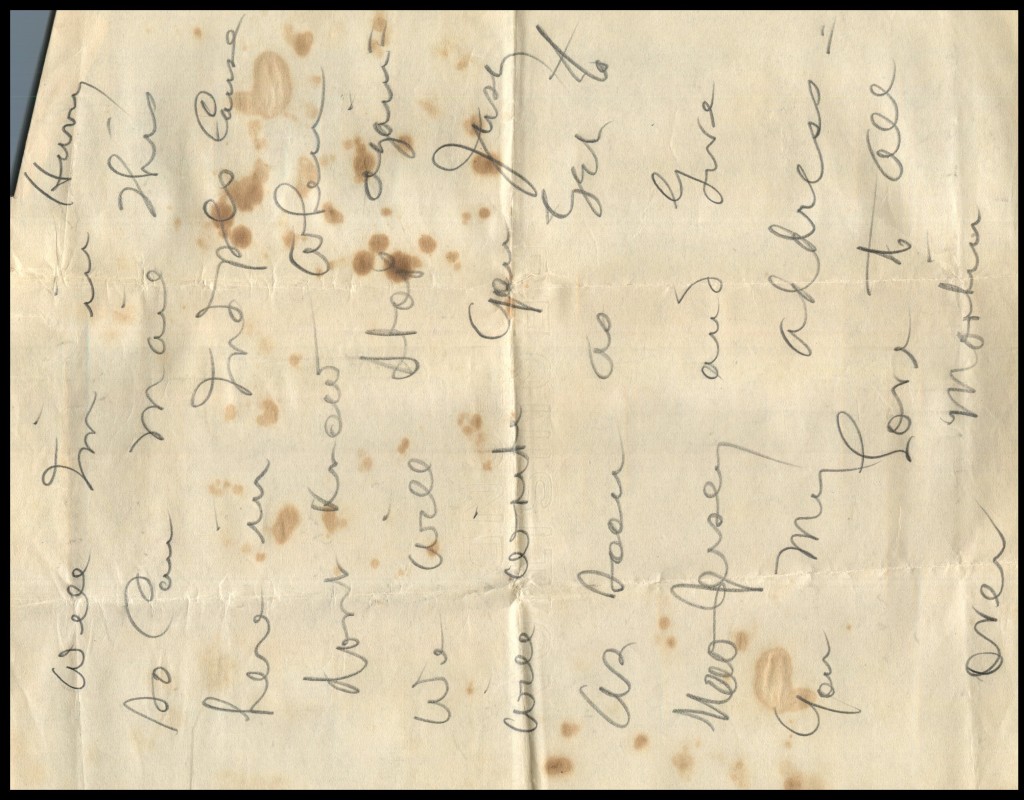 Well I'm in Hurry
So Can Mail This
here in Indpls Cause
dont know when
We will Stop again –
will write you Just
as soon as Get to
New Jersey and Give
you My address =
Love to all
Over